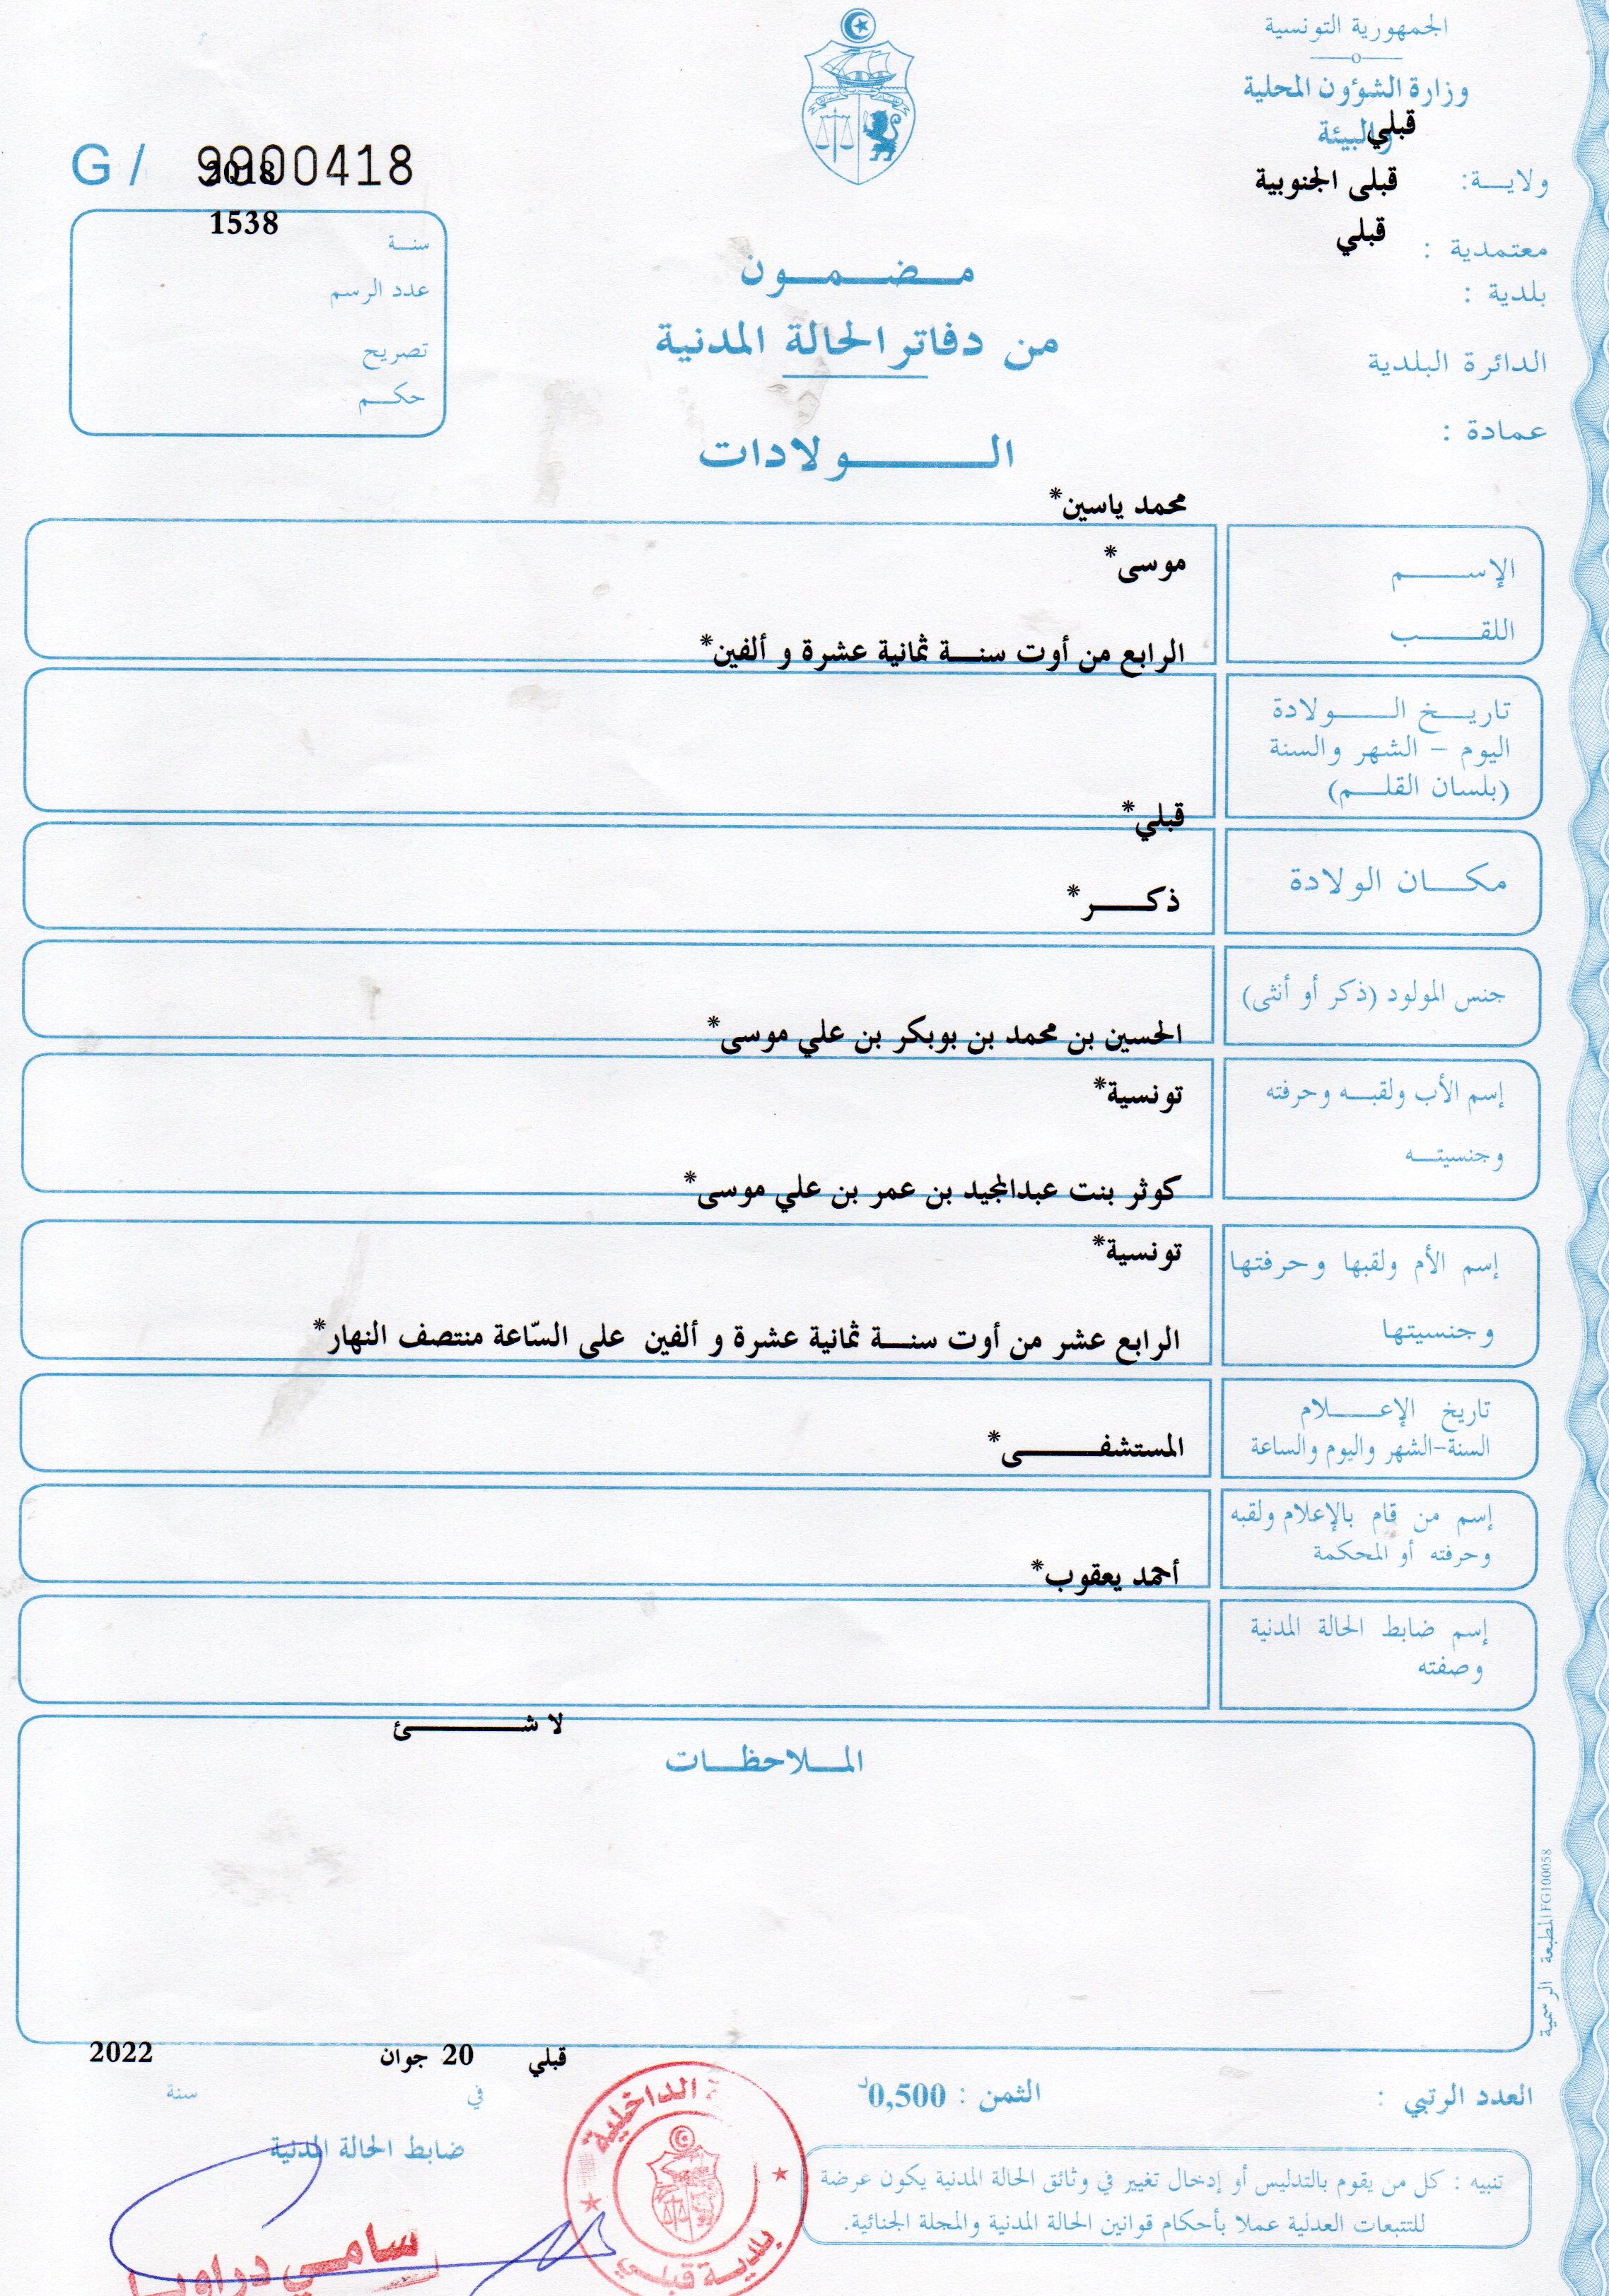 الجمهورية التونسية
وزارة الشؤون المحلية
والبيئة
قبلي
ولايـــة: قبلى الجنوبية
قبلي
معتمدية :
بلدية :
الدائرة البلدية
عمادة :
G / 9000418
2018
1538
سنـــة
عدد الرسم
تصريح
حكـــم
مـضـمـون
من دفاتر الحالة المدنية
الـــولادات
محمد ياسين*
الإســـم
موسى*
اللقـــب
الرابع من أوت سنـــة ثمانية عشرة و ألفين*
تاريـــخ الـــولادة
اليوم - الشهر والسنة
(بلسان القلـــم)
قبلي*
مكـــان الولادة
ذكـــر*
جنس المولود (ذكر أو أنثى)
الحسين بن محمد بن بوبكر بن علي موسى*
إسم الأب ولقبـــه وحرفته
تونسية*
وجنسيتـــه
كوثر بنت عبدالمجيد بن عمر بن علي موسى*
إسم الأم ولقبها وحرفتها
تونسية*
وجنسيتها
الرابع عشر من أوت سنـــة ثمانية عشرة و ألفين على السّاعة منتصف النهار*
تاريخ الإعـــلام
السنة-الشهر واليوم والساعة
المستشفـــى*
إسم من قام بالإعلام ولقبه
وحرفته أو المحكمة
أحمد يعقوب*
إسم ضابط الحالة المدنية
وصفته
لا شـــئ
المـــلاحظـــات
المطبعة الرسمية FG100058
قبلي 20 جوان 2022
في سنة
العدد الرتبي :
الثمن : 0,500د
ضابط الحالة المدنية
تنبيه : كل من يقوم بالتدليس أو إدخال تغيير في وثائق الحالة المدنية يكون عرضة
للتتبعات العدلية عملا بأحكام قوانين الحالة المدنية والمجلة الجنائية.
الداخلية
بلدية قبلي
سامي